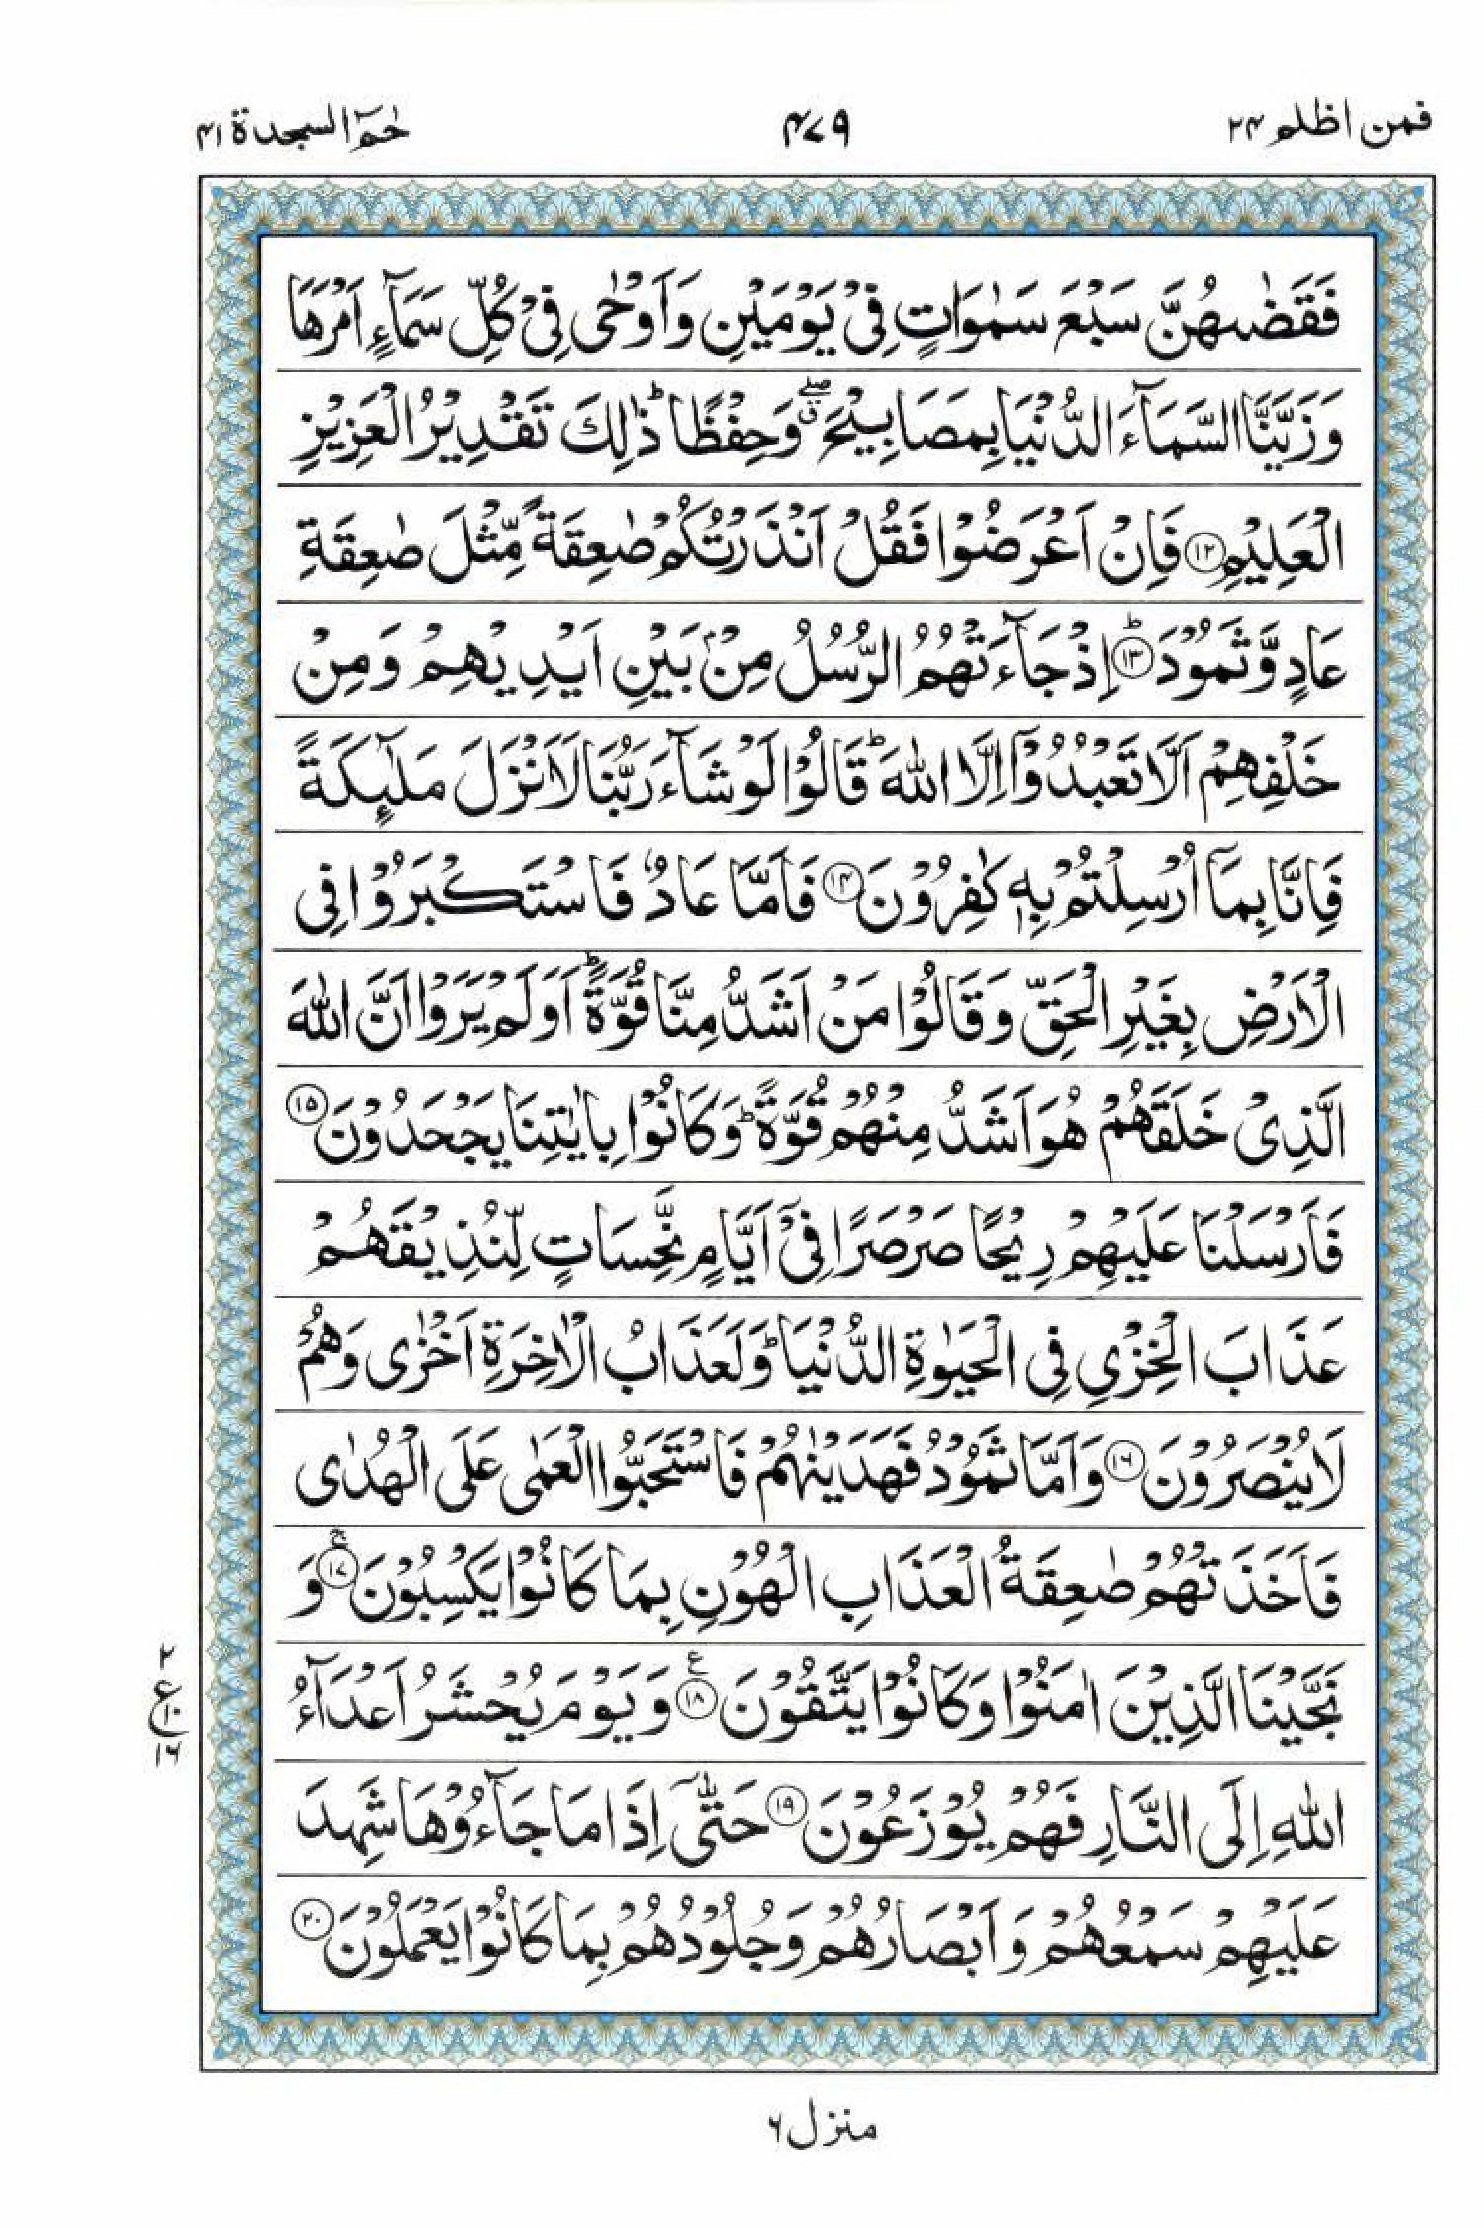 فمن اظلم ۲۴
۴۷۹
حٰمٓ السجدة ۴۱
فَقَضٰىهُنَّ سَبْعَ سَمٰوَاتٍ فِیْ یَوْمَیْنِ وَاَوْحٰی فِیْ كُلِّ سَمَآءٍ اَمْرَهَا
وَزَیَّنَّا السَّمَآءَ الدُّنْیَا بِمَصَابِیْحَ ۖۗ وَحِفْظًا ؕ ذٰلِكَ تَقْدِیْرُ الْعَزِیْزِ
الْعَلِیْمِ ۝۱۲ فَاِنْ اَعْرَضُوْا فَقُلْ اَنْذَرْتُكُمْ صٰعِقَةً مِّثْلَ صٰعِقَةِ
عَادٍ وَّثَمُوْدَ ؕ۝۱۳ اِذْ جَآءَتْهُمُ الرُّسُلُ مِنْۢ بَیْنِ اَیْدِیْهِمْ وَمِنْ
خَلْفِهِمْ اَلَّا تَعْبُدُوْۤا اِلَّا اللّٰهَ ؕ قَالُوْا لَوْ شَآءَ رَبُّنَا لَاَنْزَلَ مَلٰٓىِٕكَةً
فَاِنَّا بِمَاۤ اُرْسِلْتُمْ بِهٖ كٰفِرُوْنَ ۝۱۴ فَاَمَّا عَادٌ فَاسْتَكْبَرُوْا فِی
الْاَرْضِ بِغَیْرِ الْحَقِّ وَقَالُوْا مَنْ اَشَدُّ مِنَّا قُوَّةً ؕ اَوَلَمْ یَرَوْا اَنَّ اللّٰهَ
الَّذِیْ خَلَقَهُمْ هُوَ اَشَدُّ مِنْهُمْ قُوَّةً ؕ وَكَانُوْا بِاٰیٰتِنَا یَجْحَدُوْنَ ۝۱۵
فَاَرْسَلْنَا عَلَیْهِمْ رِیْحًا صَرْصَرًا فِیْۤ اَیَّامٍ نَّحِسَاتٍ لِّنُذِیْقَهُمْ
عَذَابَ الْخِزْیِ فِی الْحَیٰوةِ الدُّنْیَا ؕ وَلَعَذَابُ الْاٰخِرَةِ اَخْزٰی وَهُمْ
لَا یُنْصَرُوْنَ ۝۱۶ وَاَمَّا ثَمُوْدُ فَهَدَیْنٰهُمْ فَاسْتَحَبُّوا الْعَمٰی عَلَی الْهُدٰی
فَاَخَذَتْهُمْ صٰعِقَةُ الْعَذَابِ الْهُوْنِ بِمَا كَانُوْا یَكْسِبُوْنَ ۚ۝۱۷ وَ
نَجَّیْنَا الَّذِیْنَ اٰمَنُوْا وَكَانُوْا یَتَّقُوْنَ ۝۱۸ ع وَیَوْمَ یُحْشَرُ اَعْدَآءُ
اللّٰهِ اِلَی النَّارِ فَهُمْ یُوْزَعُوْنَ ۝۱۹ حَتّٰۤی اِذَا مَا جَآءُوْهَا شَهِدَ
عَلَیْهِمْ سَمْعُهُمْ وَاَبْصَارُهُمْ وَجُلُوْدُهُمْ بِمَا كَانُوْا یَعْمَلُوْنَ ۝۲۰
۲
ع ۱۰
۱۶
منزل ۶